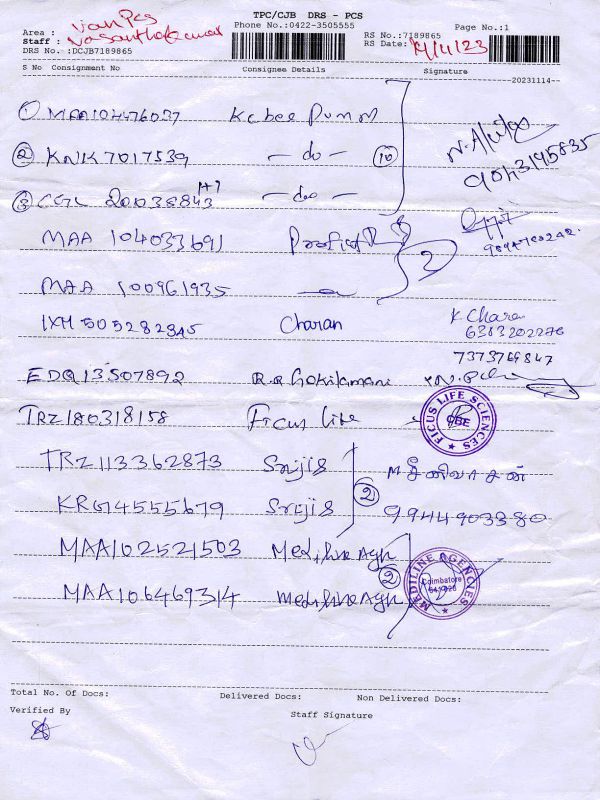 TPC/CJB DRS - PCS
Area : Van Pcs
Phone No.:0422-3505555
Page No.:1
Staff : Vasanthakumar
RS No.:7189865
DRS No. :DCJB7189865
RS Date: 14/11/23
S No Consignment No Consignee Details Signature
20231114
① MAA104476037 Kcbee Pumm
② KNK7017539 - do - ⑩
9043195835
③ CGL 20038843 1+7 - do -
MAA 104033691
2
MAA 100961935
IXM505282845 Charan K Charan
6383202276
7373769847
EDQ13507892 R.R Gokilamani
TRZ180318158 Ficus Life
FICUS LIFE SCIENCES
CBE
TRZ113362873 Srijis ஸ்ரீனிவாசன்
KRG14555679 Srejis ② 9944903380
MAA102521503 Mediline Agn
MAA106469314 mediline Agn ②
MEDILINE AGENCIES
Coimbatore
Total No. Of Docs: Delivered Docs: Non Delivered Docs:
Verified By
Staff Signature